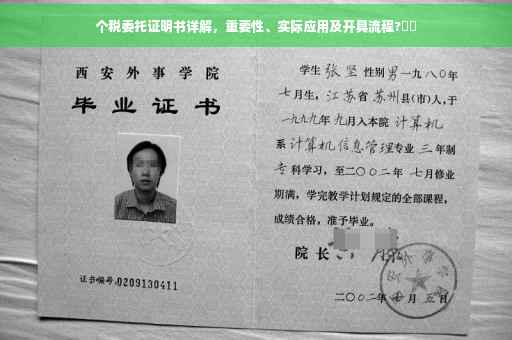 个税委托证明书详解，重要性、实际应用及开具流程?
西安外事学院
毕业证书
证书编号:0209130411
学生张坚性别男一九八〇年
七月生，江苏省苏州县(市)人,于
一九九九年九月入本院计算机
系计算机信息管理专业三年制
专科学习，至二〇〇二年七月修业
期满，学完教学计划规定的全部课程，
成绩合格，准予毕业。
院长
二〇〇二年七月五日